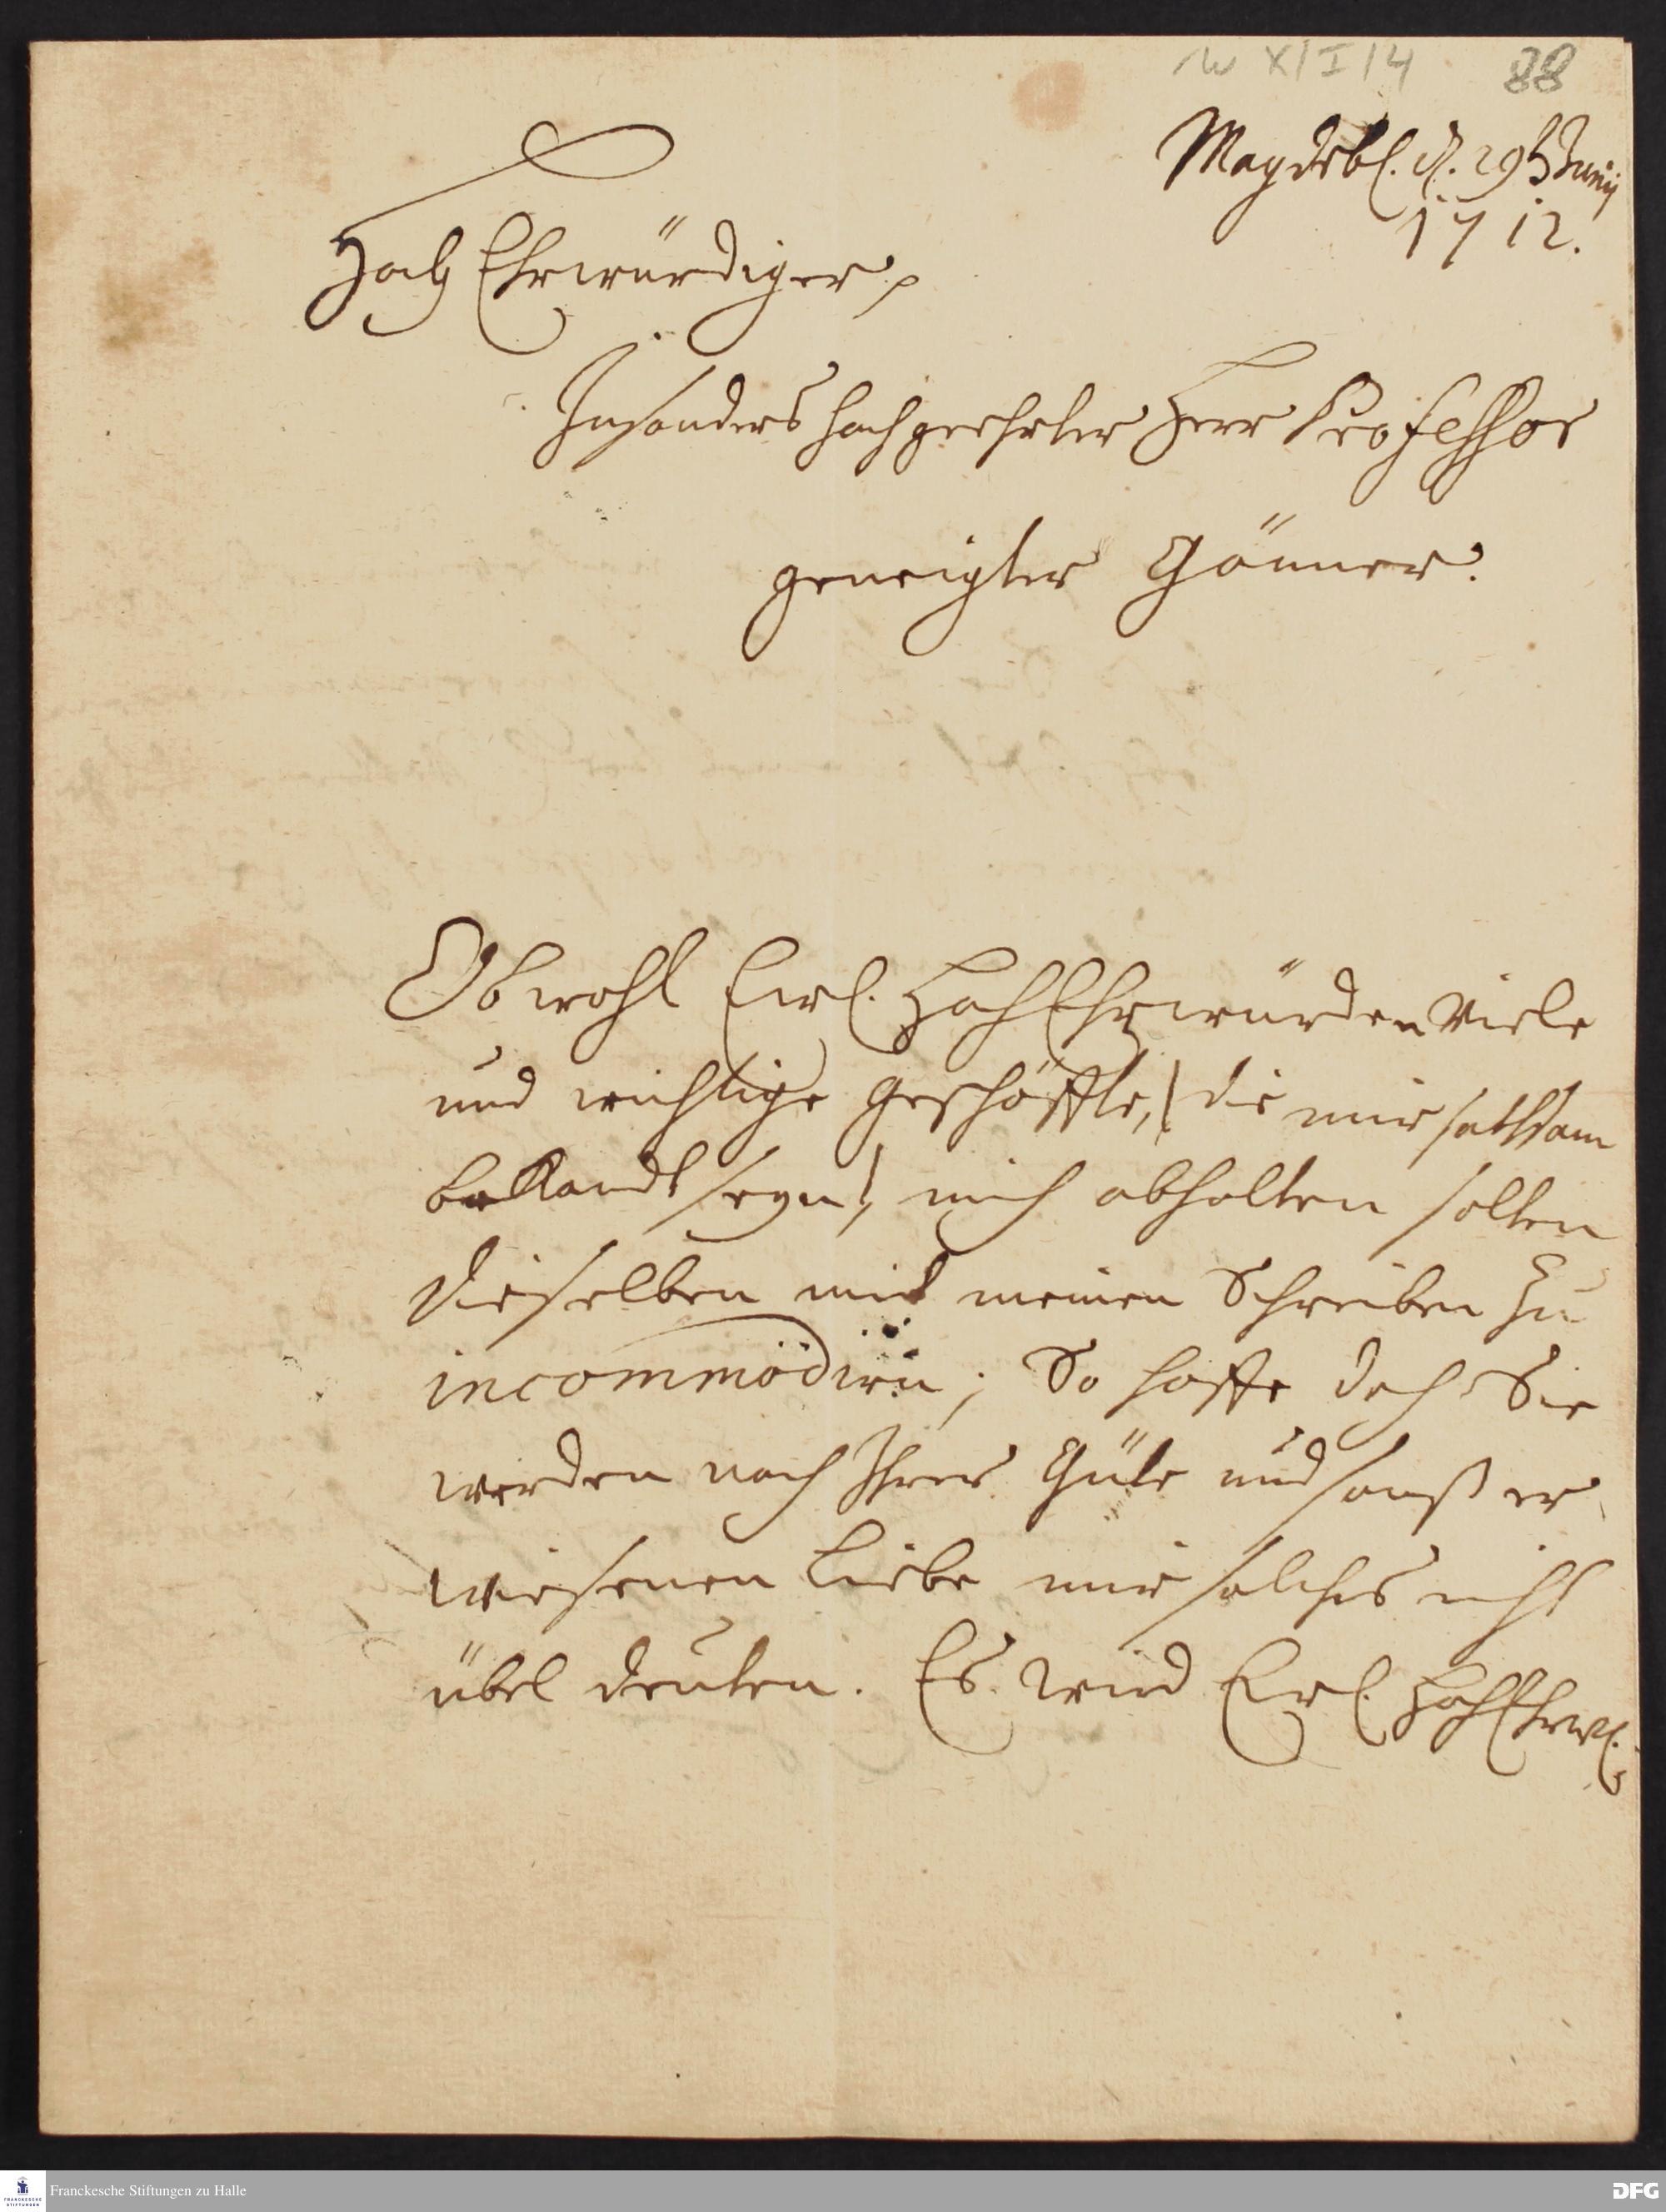 W XI/I/4 88
Magdebl. d. 29 Junij
1712.
Hoch Ehrwürdiger
Insonders hochgeehrter Herr Professor
geneigter Gönner.
Obwohl Ewl. HochEhrwürden viele
und wichtige Geschäffte, die mir sattsam
bekandt seyn, mich abhalten solten
dieselben mit meinen Schreiben zu
incommodiren; So hoffe doch Sie
werden nach Ihrer Güte und sonst er
wiesenen Liebe mir solches nicht
übel deuten. Es wird Ewl. HochEhrwl.
FRANCKESCHE STIFTUNGEN
Franckesche Stiftungen zu Halle
DFG